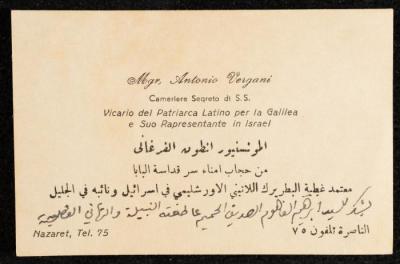 Mgr. Antonio Vergani
Cameriere Segreto di S.S.
Vicario del Patriarca Latino per la Galilea
e Suo Rapresentante in Israel
المونسنيور انطون الفرغاني
من حجاب امناء سر قداسة البابا
معتمد غبطة البطريرك اللاتيني الاورشليمي في اسرائيل ونائبه في الجليل
يشكر السيد ابرهيم الفاهوم الصديق الحميم عاطفته النبيلة والتهاني
Nazaret, Tel. 75
الناصرة تلفون ٧٥